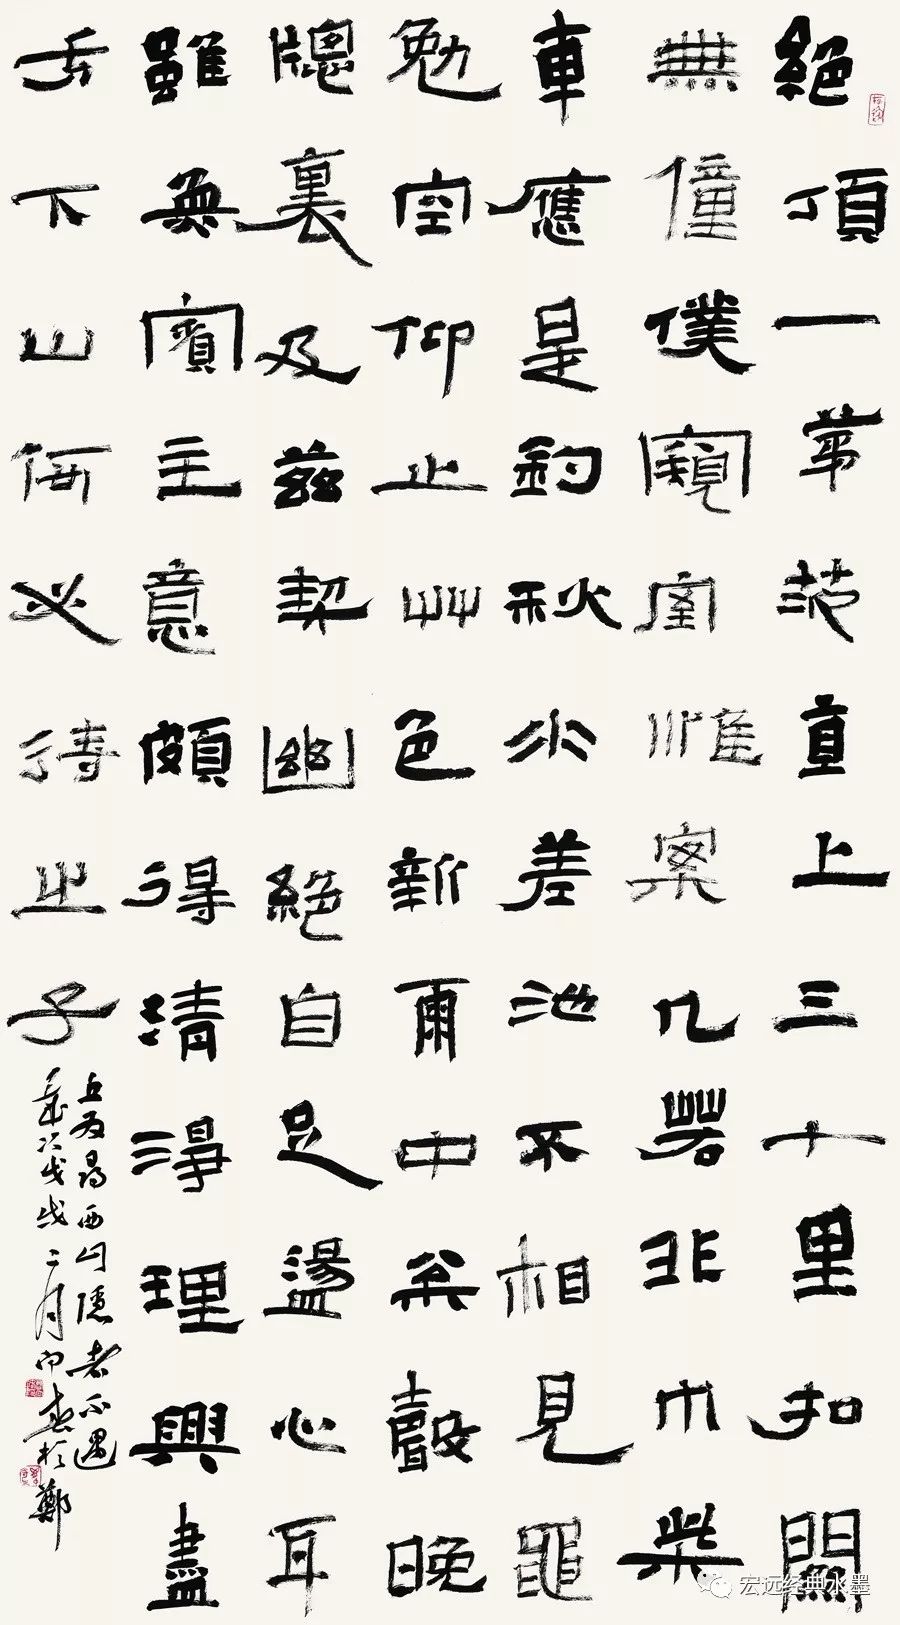 絕頂一茅茨直上三十里扣關
無僮僕窺室惟案几若非巾柴
車應是釣秋水差池不相見黽
勉空仰止艸色新雨中松聲晚
牕裏及茲契幽絕自足盪心耳
雖無賓主意頗得清淨理興盡
方下山何必待之子
丘為尋西山隱者不遇
歲次戊戌二月於鄭
宏远经典水墨